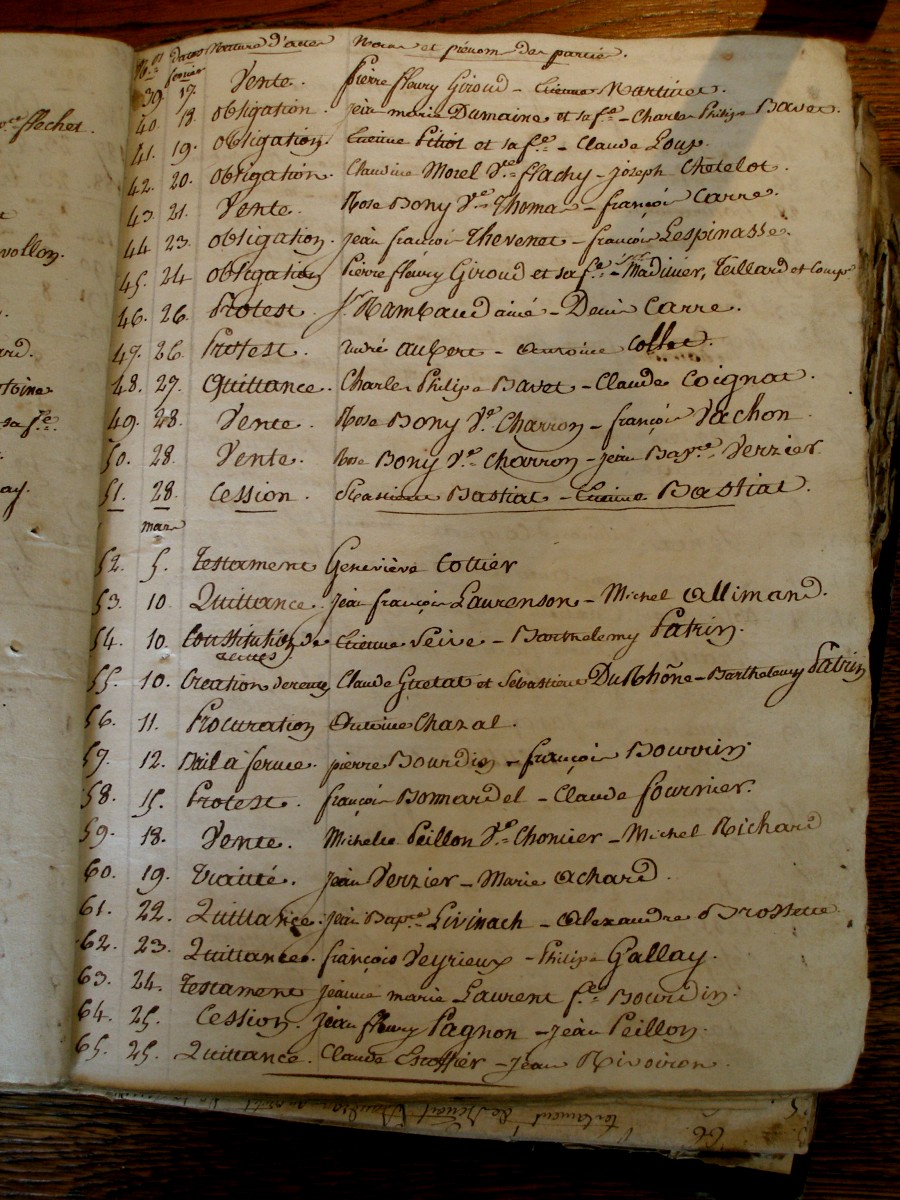 ve flechet.
vollon.
ard.
toine
sa fe.
ay.
Nos Dates Nature d'actes Noms et prénoms des parties.
fevrier
39. 17. Vente. Pierre fleury Giroud - Etienne Martinet.
40. 18. obligation. jean marie Dumaine et sa fe - Charles Philipe Bavet.
41. 19. obligation. Etienne Pitiot et sa fe - Claude Loup.
42. 20. obligation. Claudine Morel Ve flachy - joseph Chetelot.
43. 21. Vente. Rose Bony Ve Thomas - françois Carre.
44. 23. obligation. jean françois Thevenet - françois Lespinasse.
45. 24. obligation Pierre fleury Giroud et sa fe - Madinier, Teillard et Compe
46. 26. Protest. Sr. Rambaud ainé - Denis Carre.
47. 26. Protest. André aubert - Antoine Collet.
48. 27. Quittance. Charles Philipe Bavet - Claude Coignat.
49. 28. Vente. Rose Bony Ve Charron - françois Vachon
50. 28. Vente. Rose Bony Ve Charron - jean Bapte Verzier
51. 28. Cession. Sebastienne Bastiat - Etienne Bastiat.
mars
52. 5. Testament Geneviève Cottier
53. 10. Quittance. jean françois Laurenson - Michel Allimand.
54. 10. Constitution de Etienne Seive - Barthelemy Patrin.
rentes
55. 10. Creation de rentes Claude Guetat et Sebastiene Du Rhône - Barthelemy Patrin
56. 11. Procuration Antoine Chazal.
57. 12. Bail à ferme. pierre Bourdin - françois Bouvrin
58. 15. Protest. françois Bonnardel - Claude fournier.
59. 18. Vente. Michelle Peillon Ve Chomier - Michel Richard
60. 19. Traité. Jean Verzier - Marie Achard.
61. 22. Quittance. jean Bapte Livinach - Alexandre Brossette
62. 23. Quittance. françois Veyrieux - Philipe Gallay.
63. 24. Testament jeanne marie Laurent fe Bourdin.
64. 25. Cession. Jean fleury Pagnon - Jean Peillon.
65. 25. Quittance. Claude Escoffier - Jean Rivoiron.
66. testament de Benoit